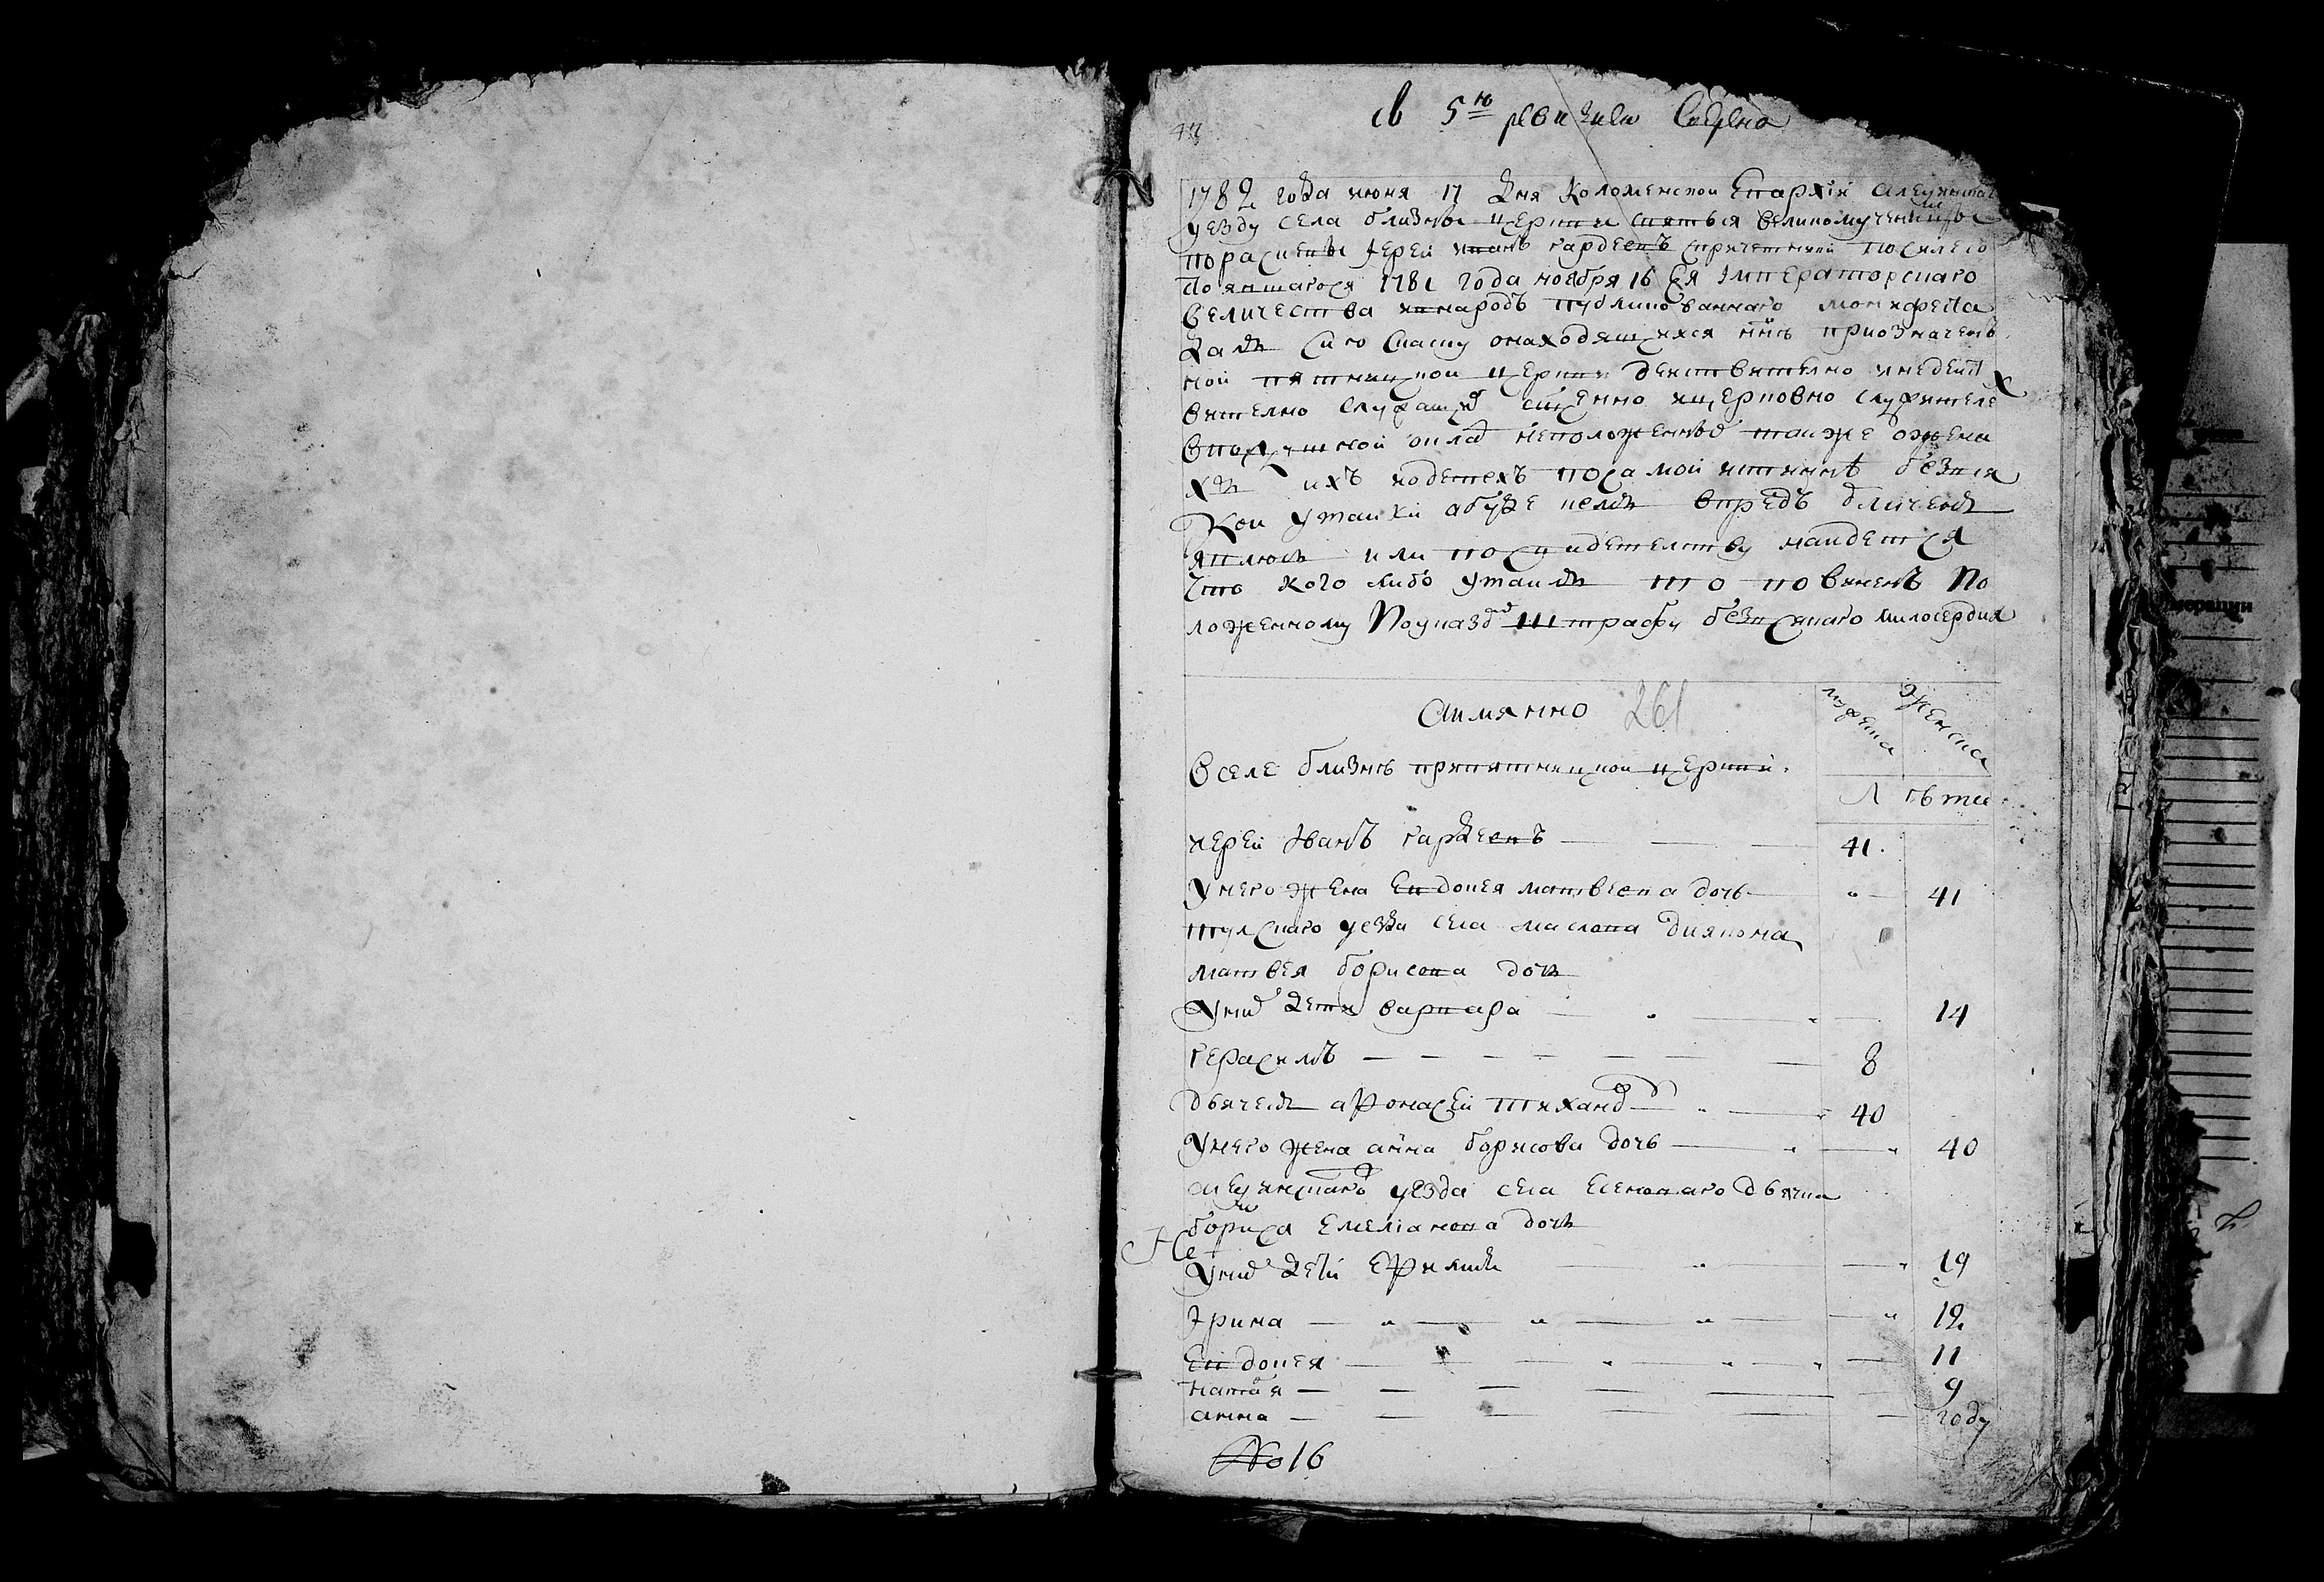 с 5ю ревизиею
1782 года июня 17 дня коломенской епархїи алексинскаг
уезду села близны церкви святыя великомученицы
параскевы иерей иванъ гардеевъ спричетники по силе со
стоявшагося 1781 года ноября 16 ея императорскаго
величества внародъ публикованнаго манифеста
дали сию скаску онаходящихся ннѣ приозначен
ной пятницкой церкви действително инедейст
вително служащих сщенно ицерковно служителе
вподушной оклад неположенных также оженах
ихъ иодетехъ посамой истиннѣ безвся
кой утайки абуде кемъ впредь
или посвидетелству найдется
что кого либо утаили то повиненъ по
ложенному поуказам штрафу безвсякаго милосердия
аимянно 261
мужеска женска
вселе близнѣ припятницкой церкви
лѣта
иерей иванъ гардеевъ 41
унего жена евдокея матвеева дочь 41
тулскаго уезда села маслова диякона
матвея борисова дочь
уних дети варвара 14
герасимъ 8
дьячекъ афонасей тиханов 40
унего жена анна борисова дочь 40
алексинскаго уезда села есеноваго дьячка
бориса емелианова дочь
уних дети 19
ирина 12
евдокея 11
наталя 9
анна году
№ 16